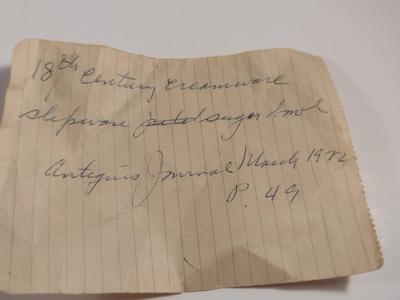 18th Century creamware
slipware sugar bowl
Antiques Journal March 1972
P. 49